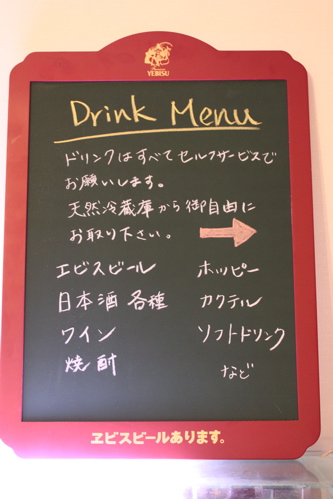 YEBISU
Drink Menu
ドリンクはすべてセルフサービスで
お願いします。
天然冷蔵庫から御自由に
お取り下さい。
エビスビール
日本酒 各種
ワイン
焼酎
ホッピー
カクテル
ソフトドリンク
など
ヱビスビールあります。